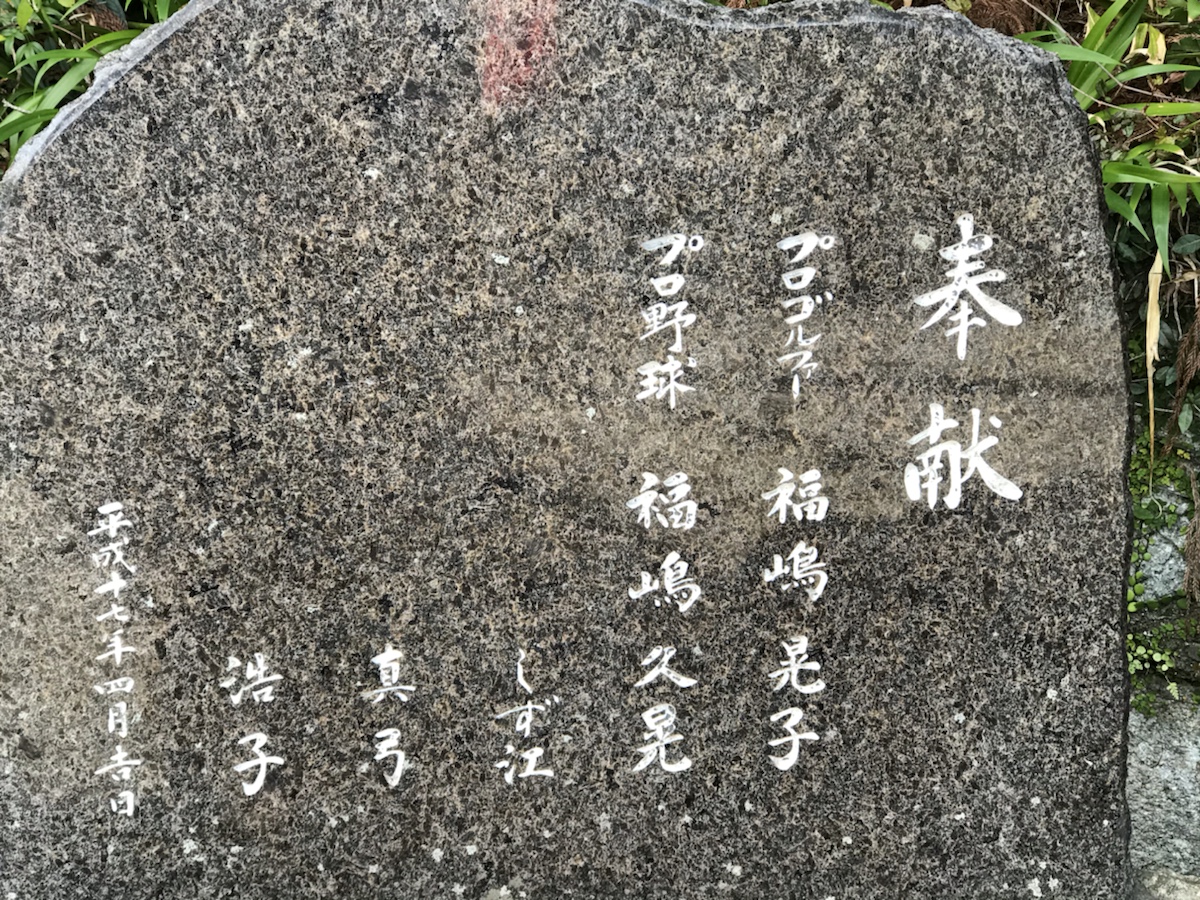 奉献
プロゴルファー 福嶋晃子
プロ野球 福嶋久晃
しず江
真弓
浩子
平成十七年四月吉日